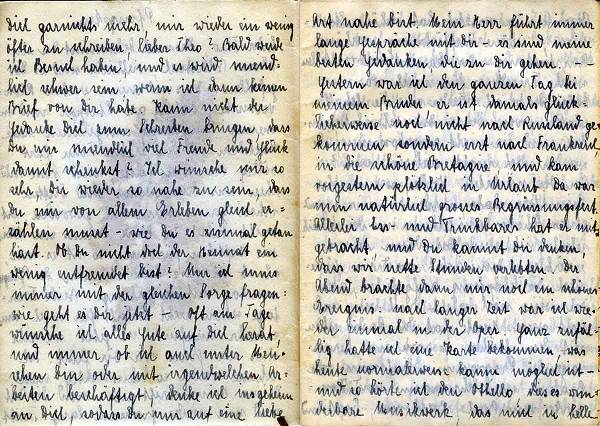 Dich garnichts mehr, mir wieder ein wenig
öfter zu schreiben, lieber Theo? Bald werde
ich Besuch haben, und es wird unend-
lich schwer sein, wenn ich dann keinen
Brief von Dir habe. Kann nicht der
Gedanke Dich zum Schreiben bringen, dass
Du mir unendlich viel Freude und Glück
damit schenkst? Ich wünsche mir so
sehr, Dir wieder so nahe zu sein, dass
Du mir von allem Erleben gleich er-
zählen musst - wie Du es einmal getan
hast. Ob Du nicht doch der Heimat ein
wenig entfremdet bist? Nur ich muss
immer mit der gleichen Sorge fragen:
wie geht es Dir jetzt - Oft am Tage
wünsche ich alles Gute auf Dich herab,
und immer, ob ich auch unter Men-
schen bin oder mit irgendwelchen Ar-
beiten beschäftigt, denke ich insgeheim
an Dich, sodass Du mir auf eine liebe
Art nahe bist. Mein Herz führt immer
lange Gespräche mit Dir - es sind meine
besten Gedanken, die zu Dir gehen. - -
Gestern war ich den ganzen Tag bei
meinem Bruder er ist damals glück-
licherweise noch nicht nach Russland ge-
kommen sondern erst nach Frankreich,
in die schöne Bretagne, und kam
vorgestern plötzlich in Urlaub. Da war
nun natürlich grosses Begrüssungsfest.
Allerlei Ess- und Trinkbares hat er mit-
gebracht, und Du kannst Dir denken,
dass wir nette Stunden verlebten. Der
Abend brachte dann mir noch ein schönes
Ereignis: nach langer Zeit war ich wie-
der einmal in der Oper. Ganz zufäl-
lig hatte ich eine Karte bekommen, was
heute normalerweise kaum möglich ist -
und so hörte ich den Othello, dieses wun-
derbare Musikwerk, das mich in helle